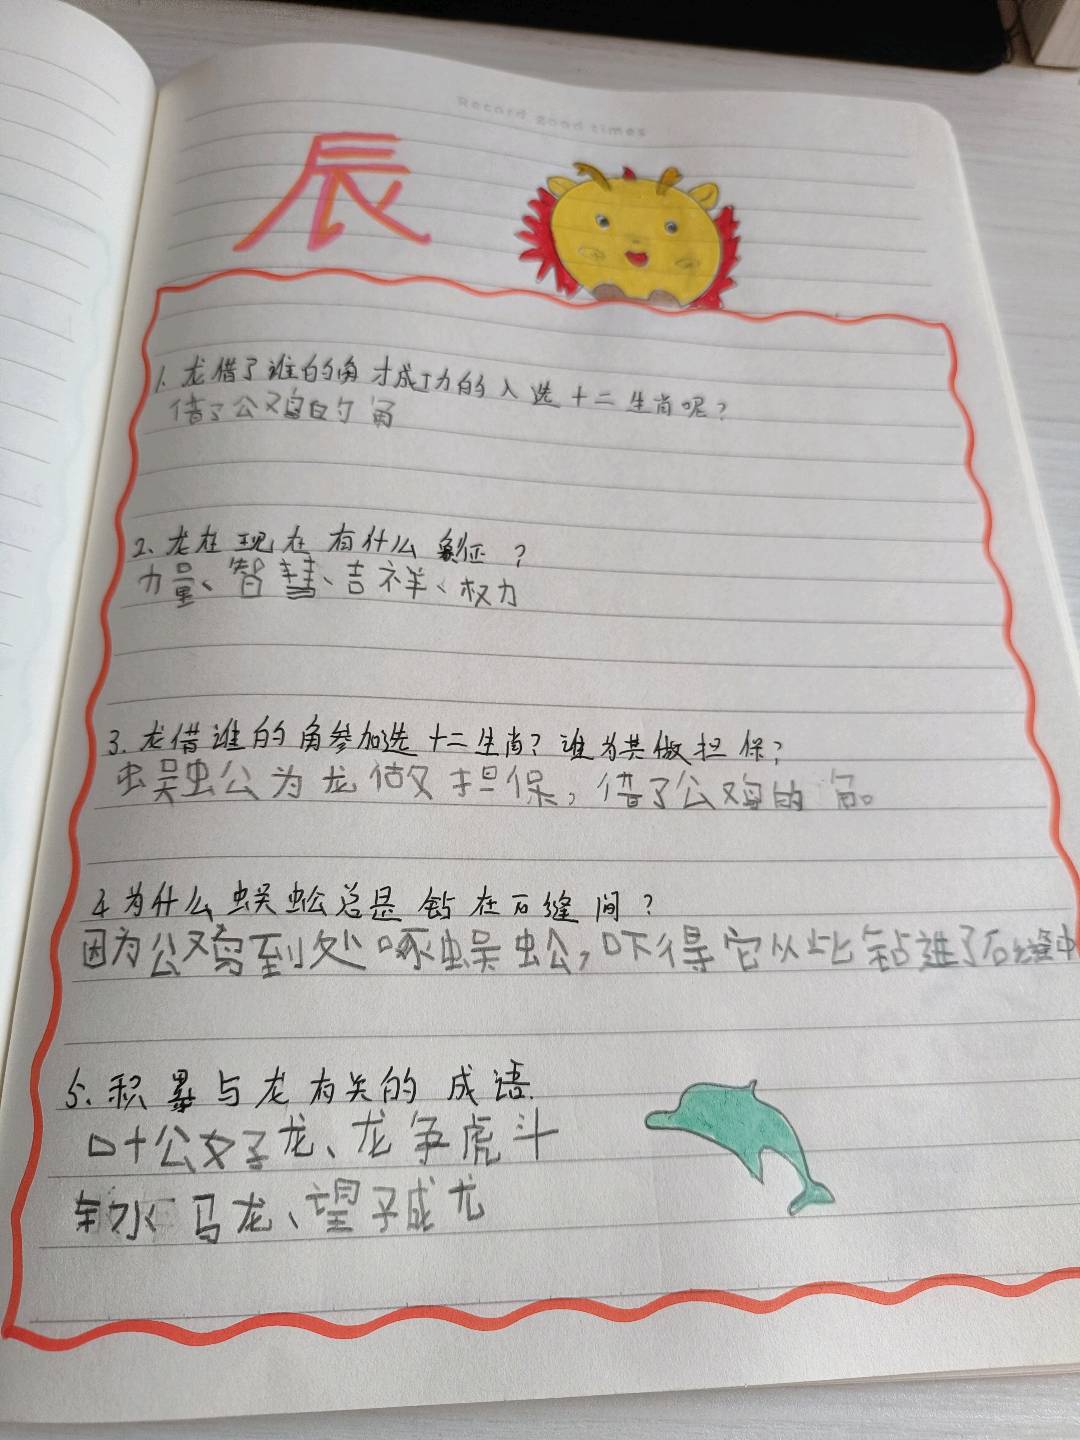 Record good times
辰
1. 龙借了谁的角才成功的入选十二生肖呢?
借了公鸡的角
2、龙在现在有什么象征?
力量、智慧、吉祥、权力
3、龙借谁的角参加选十二生肖?谁为其做担保?
蜈蚣为龙做担保,借了公鸡的角。
4 为什么蜈蚣总是钻在石缝间?
因为公鸡到处啄蜈蚣,吓得它从此钻進了石缝中
5、积累与龙有关的成语.
叶公好龙、龙争虎斗
车水马龙、望子成龙